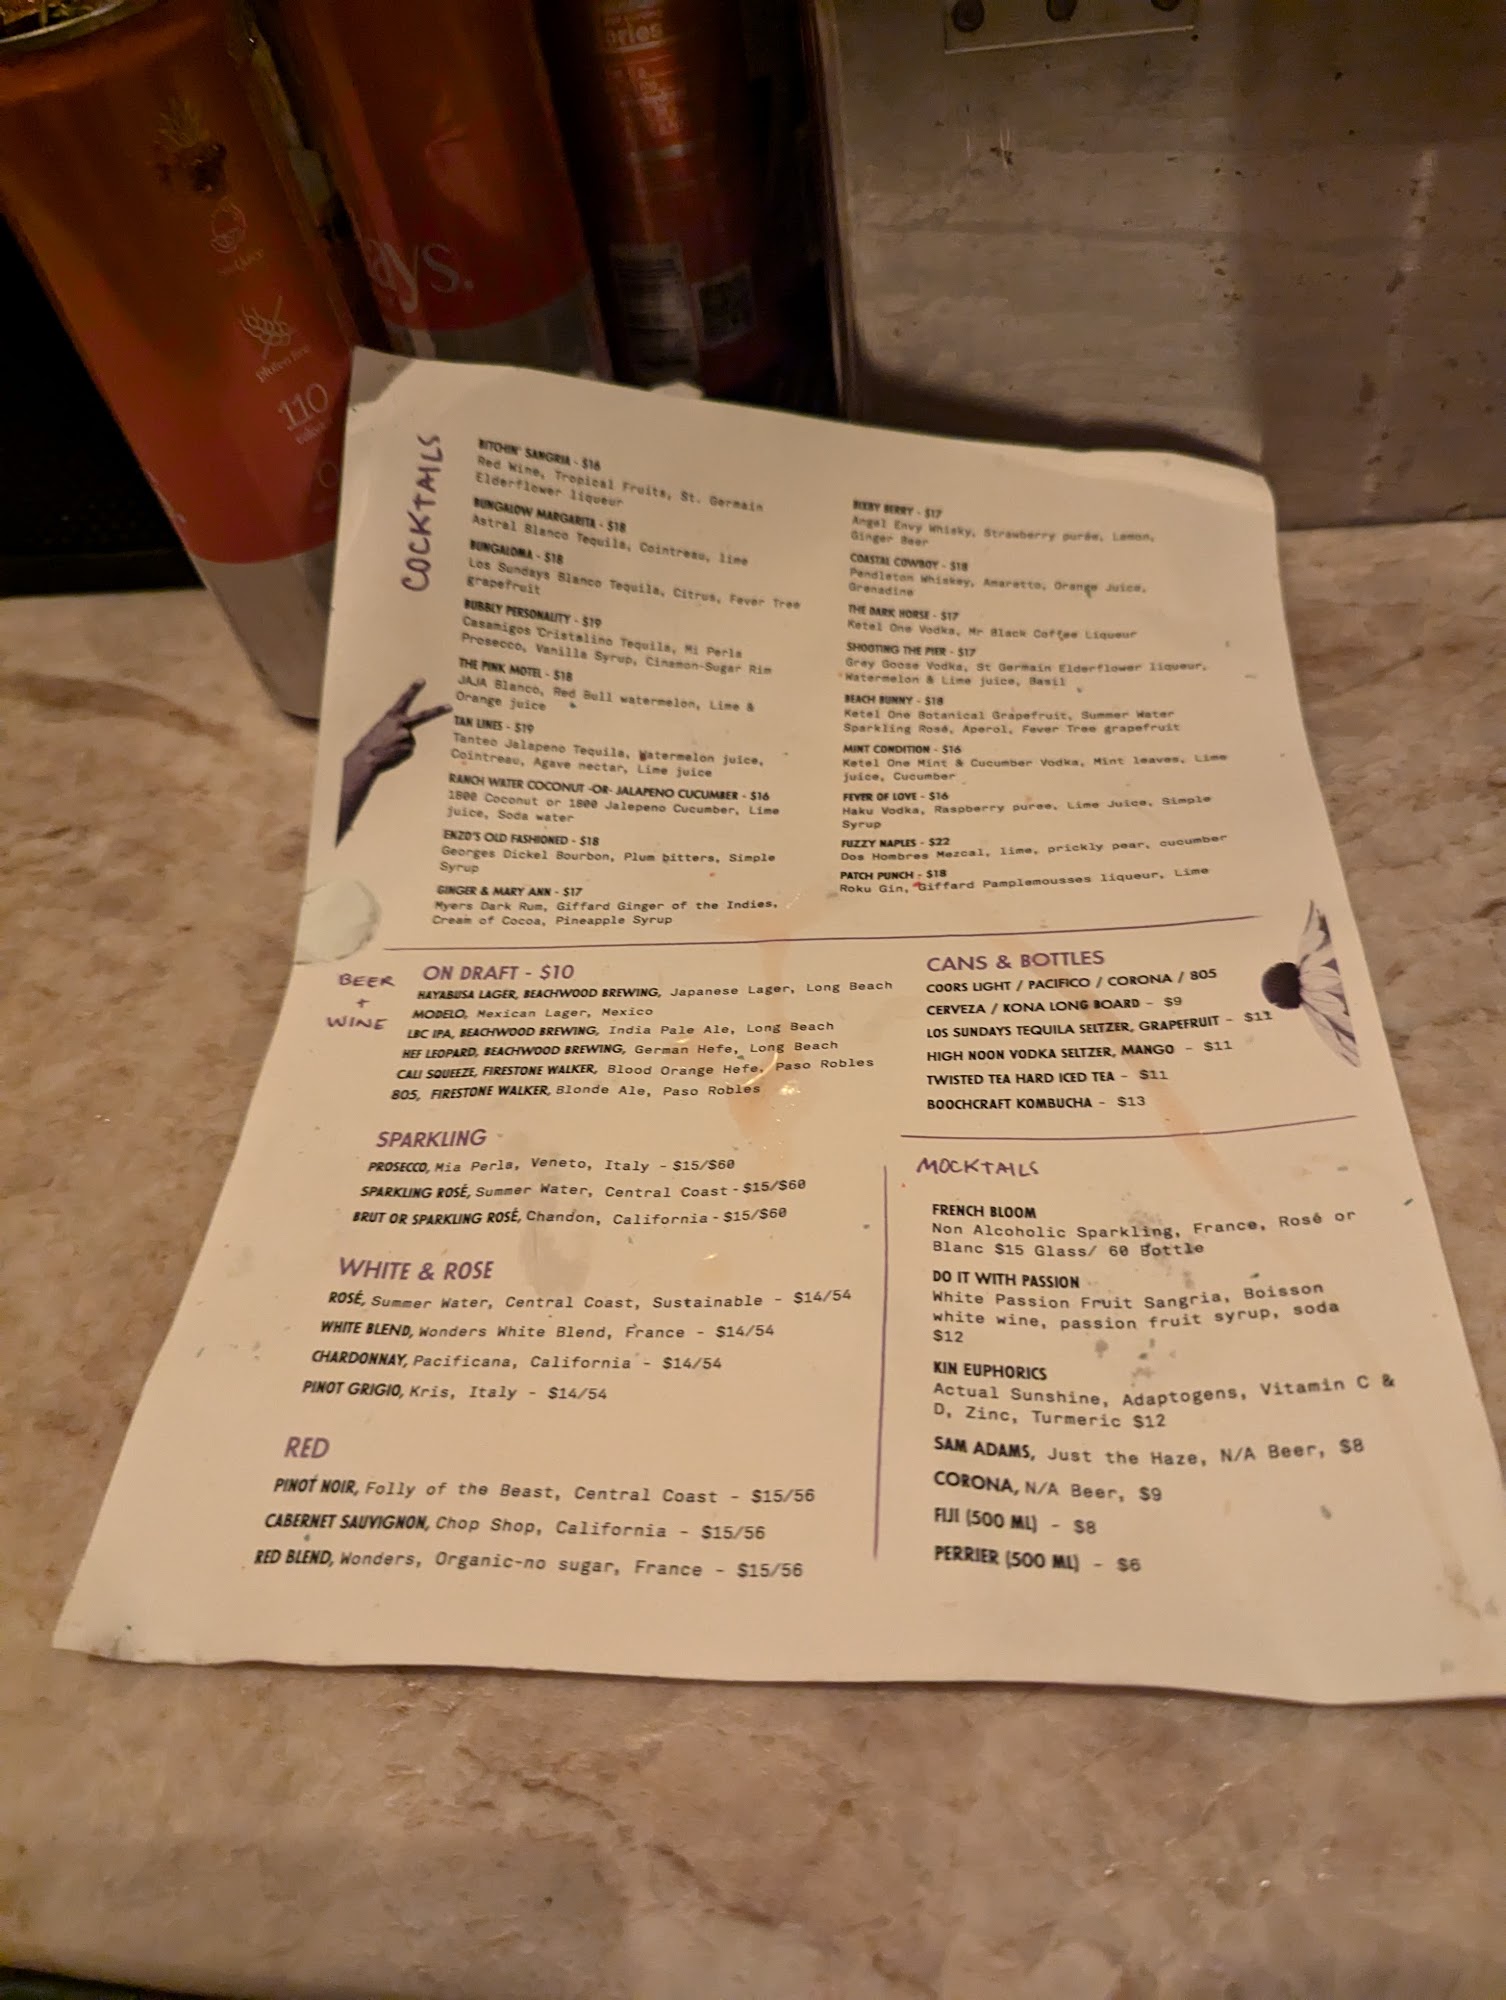 ories
ays.
gluten free
110
COCKTAILS
BITCHIN' SANGRIA - $16
Red Wine, Tropical Fruits, St. Germain
Elderflower liqueur
BUNGALOW MARGARITA - $18
Astral Blanco Tequila, Cointreau, lime
BUNGALOMA - $18
Los Sundays Blanco Tequila, Citrus, Fever Tree
grapefruit
BUBBLY PERSONALITY - $19
Casamigos Cristalino Tequila, Mi Perla
Prosecco, Vanilla Syrup, Cinamon-Sugar Rim
THE PINK MOTEL - $18
JAJA Blanco, Red Bull watermelon, Lime &
Orange juice
TAN LINES - $19
Tanteo Jalapeno Tequila, Watermelon juice,
Cointreau, Agave nectar, Lime juice
RANCH WATER COCONUT -OR- JALAPENO CUCUMBER - $16
1800 Coconut or 1800 Jalepeno Cucumber, Lime
juice, Soda water
ENZO'S OLD FASHIONED - $18
Georges Dickel Bourbon, Plum bitters, Simple
Syrup
GINGER & MARY ANN - $17
Myers Dark Rum, Giffard Ginger of the Indies,
Cream of Cocoa, Pineapple Syrup
BIXBY BERRY - $17
Angel Envy Whisky, Strawberry purée, Lemon,
Ginger Beer
COASTAL COWBOY - $18
Pendleton Whiskey, Amaretto, Orange Juice,
Grenadine
THE DARK HORSE - $17
Ketel One Vodka, Mr Black Coffee Liqueur
SHOOTING THE PIER - $17
Grey Goose Vodka, St Germain Elderflower liqueur,
Watermelon & Lime juice, Basil
BEACH BUNNY - $18
Ketel One Botanical Grapefruit, Summer Water
Sparkling Rosé, Aperol, Fever Tree grapefruit
MINT CONDITION - $16
Ketel One Mint & Cucumber Vodka, Mint leaves, Lime
juice, Cucumber
FEVER OF LOVE - $16
Haku Vodka, Raspberry puree, Lime Juice, Simple
Syrup
FUZZY NAPLES - $22
Dos Hombres Mezcal, lime, prickly pear, cucumber
PATCH PUNCH - $18
Roku Gin, Giffard Pamplemousses liqueur, Lime
BEER
+
WINE
ON DRAFT - $10
HAYABUSA LAGER, BEACHWOOD BREWING, Japanese Lager, Long Beach
MODELO, Mexican Lager, Mexico
LBC IPA, BEACHWOOD BREWING, India Pale Ale, Long Beach
HEF LEOPARD, BEACHWOOD BREWING, German Hefe, Long Beach
CALI SQUEEZE, FIRESTONE WALKER, Blood Orange Hefe, Paso Robles
805, FIRESTONE WALKER, Blonde Ale, Paso Robles
SPARKLING
PROSECCO, Mia Perla, Veneto, Italy - $15/$60
SPARKLING ROSÉ, Summer Water, Central Coast - $15/$60
BRUT OR SPARKLING ROSÉ, Chandon, California - $15/$60
WHITE & ROSE
ROSÉ, Summer Water, Central Coast, Sustainable - $14/54
WHITE BLEND, Wonders White Blend, France - $14/54
CHARDONNAY, Pacificana, California - $14/54
PINOT GRIGIO, Kris, Italy - $14/54
RED
PINOT NOIR, Folly of the Beast, Central Coast - $15/56
CABERNET SAUVIGNON, Chop Shop, California - $15/56
RED BLEND, Wonders, Organic-no sugar, France - $15/56
CANS & BOTTLES
COORS LIGHT / PACIFICO / CORONA / 805
CERVEZA / KONA LONG BOARD - $9
LOS SUNDAYS TEQUILA SELTZER, GRAPEFRUIT - $11
HIGH NOON VODKA SELTZER, MANGO - $11
TWISTED TEA HARD ICED TEA - $11
BOOCHCRAFT KOMBUCHA - $13
MOCKTAILS
FRENCH BLOOM
Non Alcoholic Sparkling, France, Rosé or
Blanc $15 Glass/ 60 Bottle
DO IT WITH PASSION
White Passion Fruit Sangria, Boisson
white wine, passion fruit syrup, soda
$12
KIN EUPHORICS
Actual Sunshine, Adaptogens, Vitamin C &
D, Zinc, Turmeric $12
SAM ADAMS, Just the Haze, N/A Beer, $8
CORONA, N/A Beer, $9
FIJI (500 ML) - $8
PERRIER (500 ML) - $6